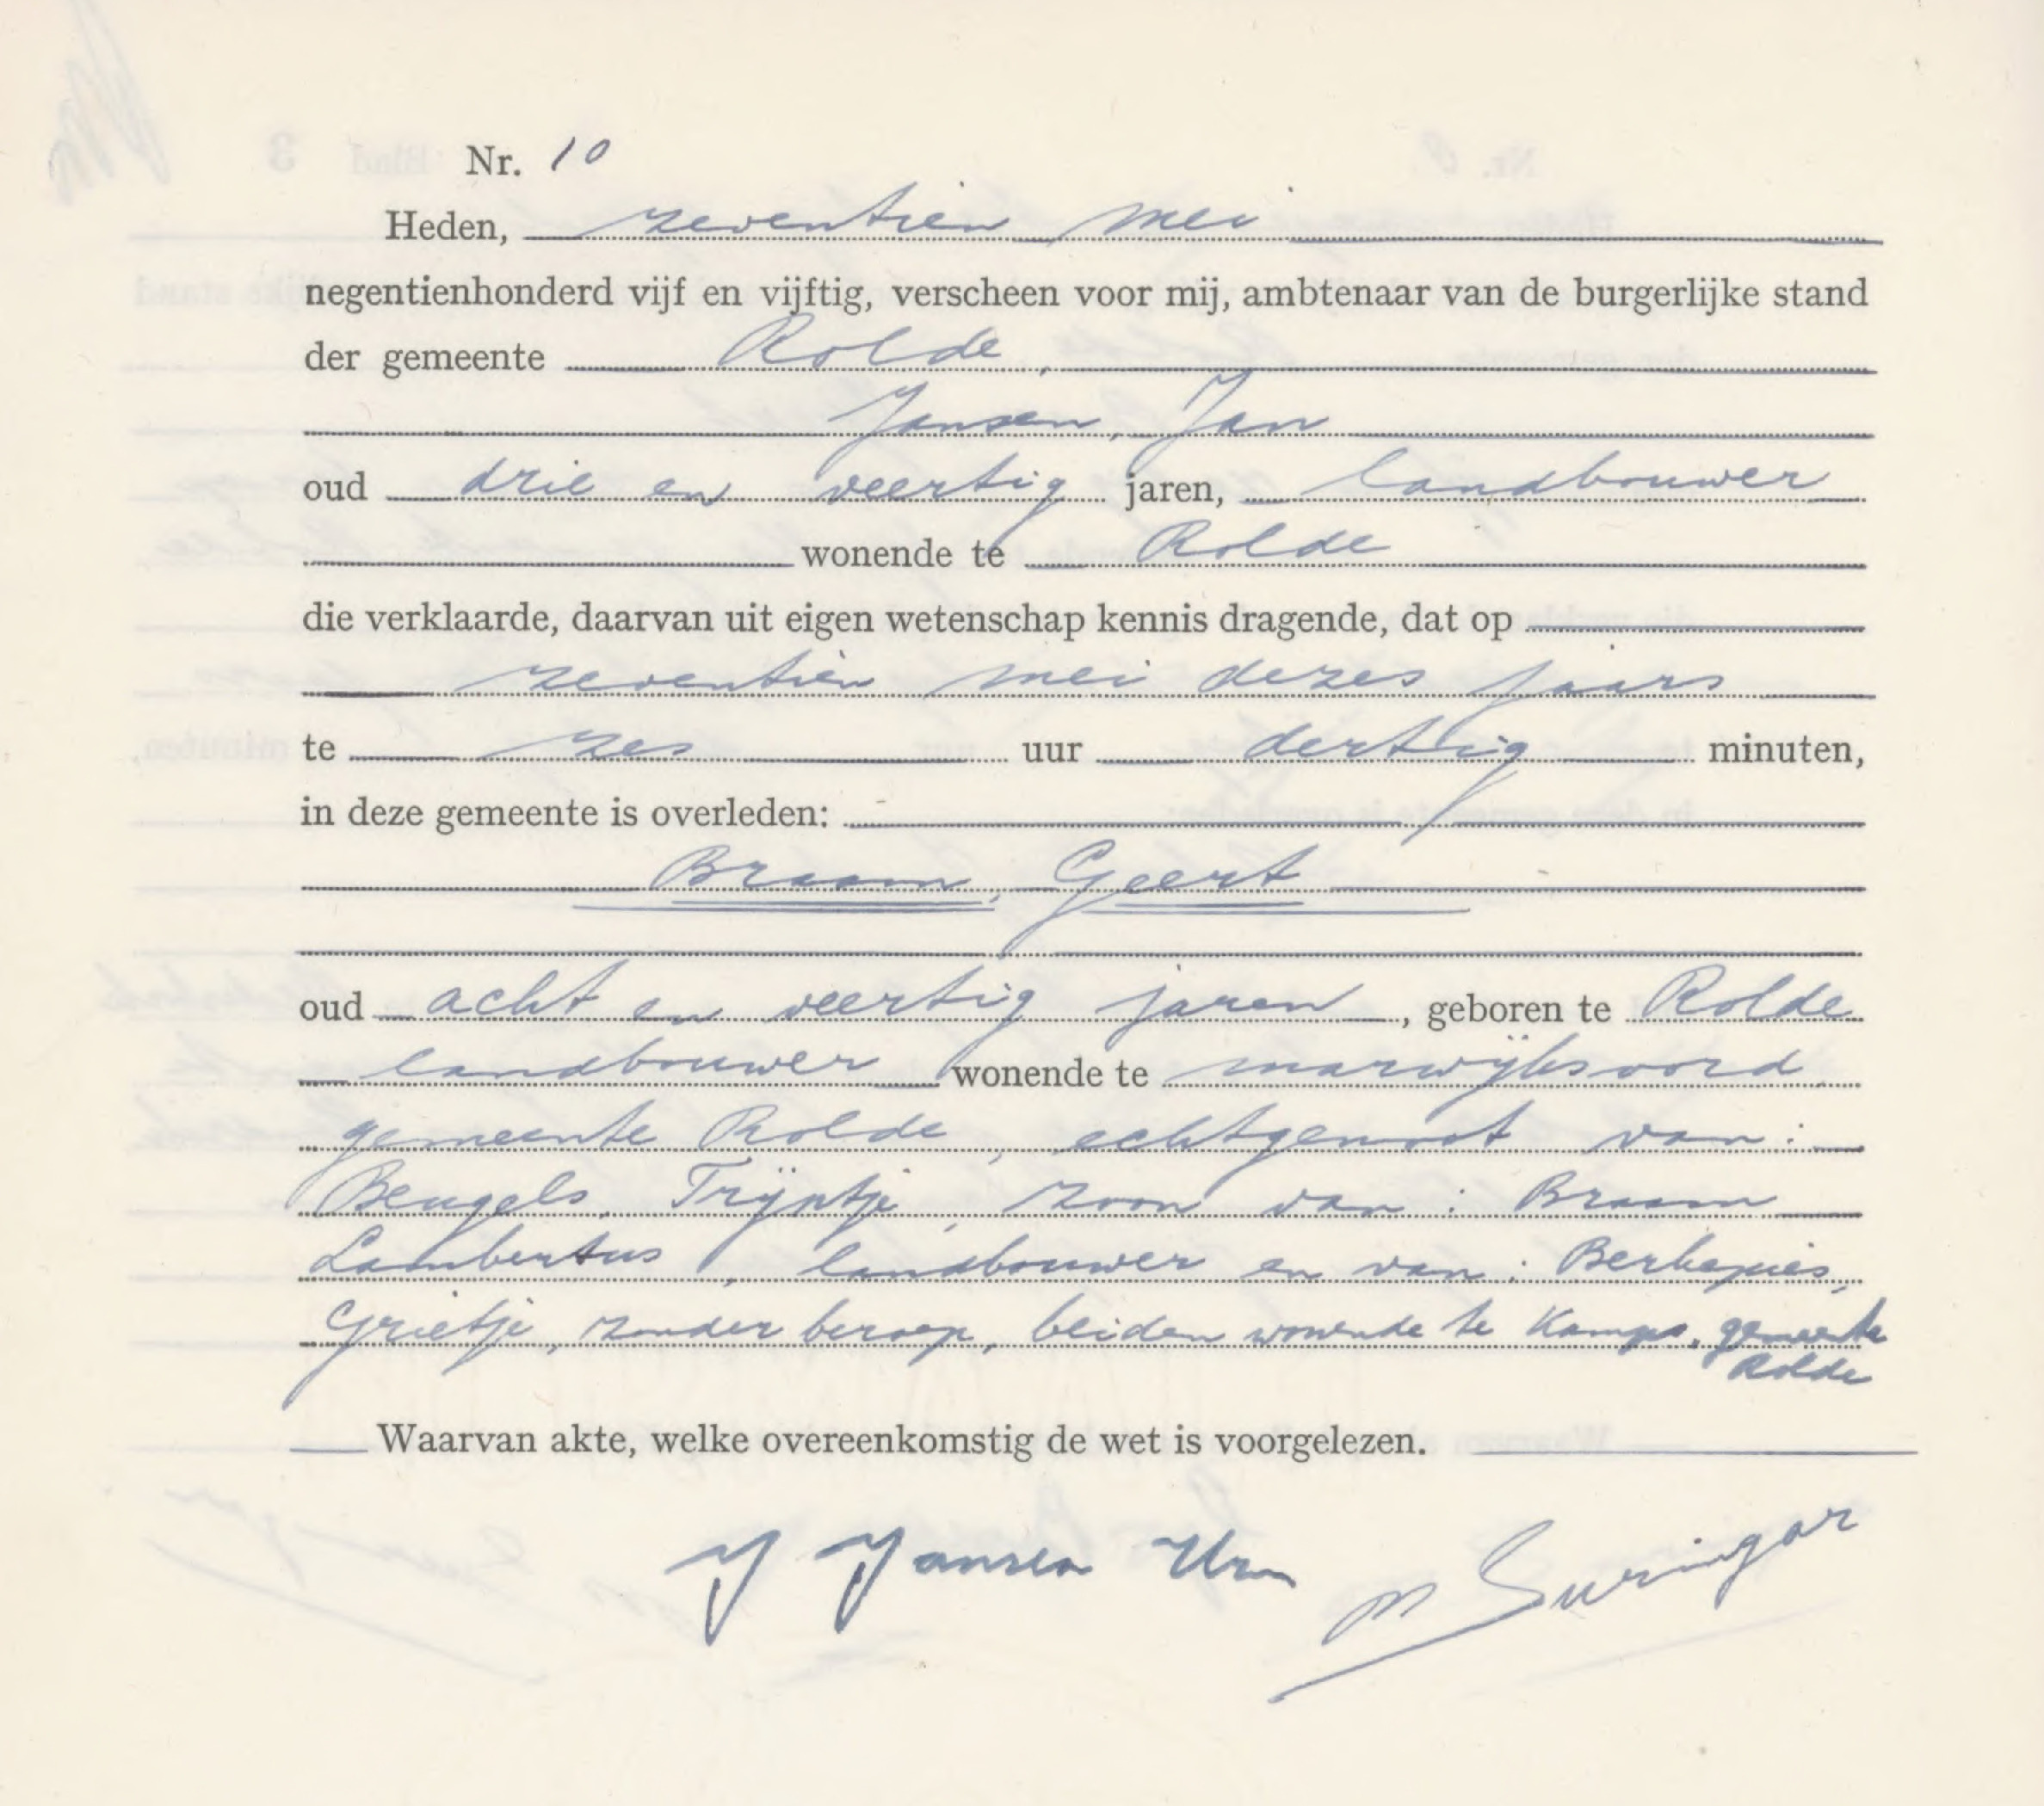 Nr. 10
Heden, zeventien mei
negentienhonderd vijf en vijftig, verscheen voor mij, ambtenaar van de burgerlijke stand
der gemeente Rolde,
Jansen, Jan
oud drie en veertig jaren, landbouwer
wonende te Rolde
die verklaarde, daarvan uit eigen wetenschap kennis dragende, dat op
zeventien mei dezes jaars
te zes uur dertig minuten,
in deze gemeente is overleden:
Braam, Geert
oud acht en veertig jaren, geboren te Rolde
landbouwer wonende te marwijksoord
gemeente Rolde, echtgenoot van:
Beugels, Trijntje, zoon van: Braam
Lambertus, landbouwer en van: Berkepies,
Grietje, zonder beroep, beiden wonende te Kamps, gemeente
Rolde
Waarvan akte, welke overeenkomstig de wet is voorgelezen.
J Jansen Hzn
Suringar